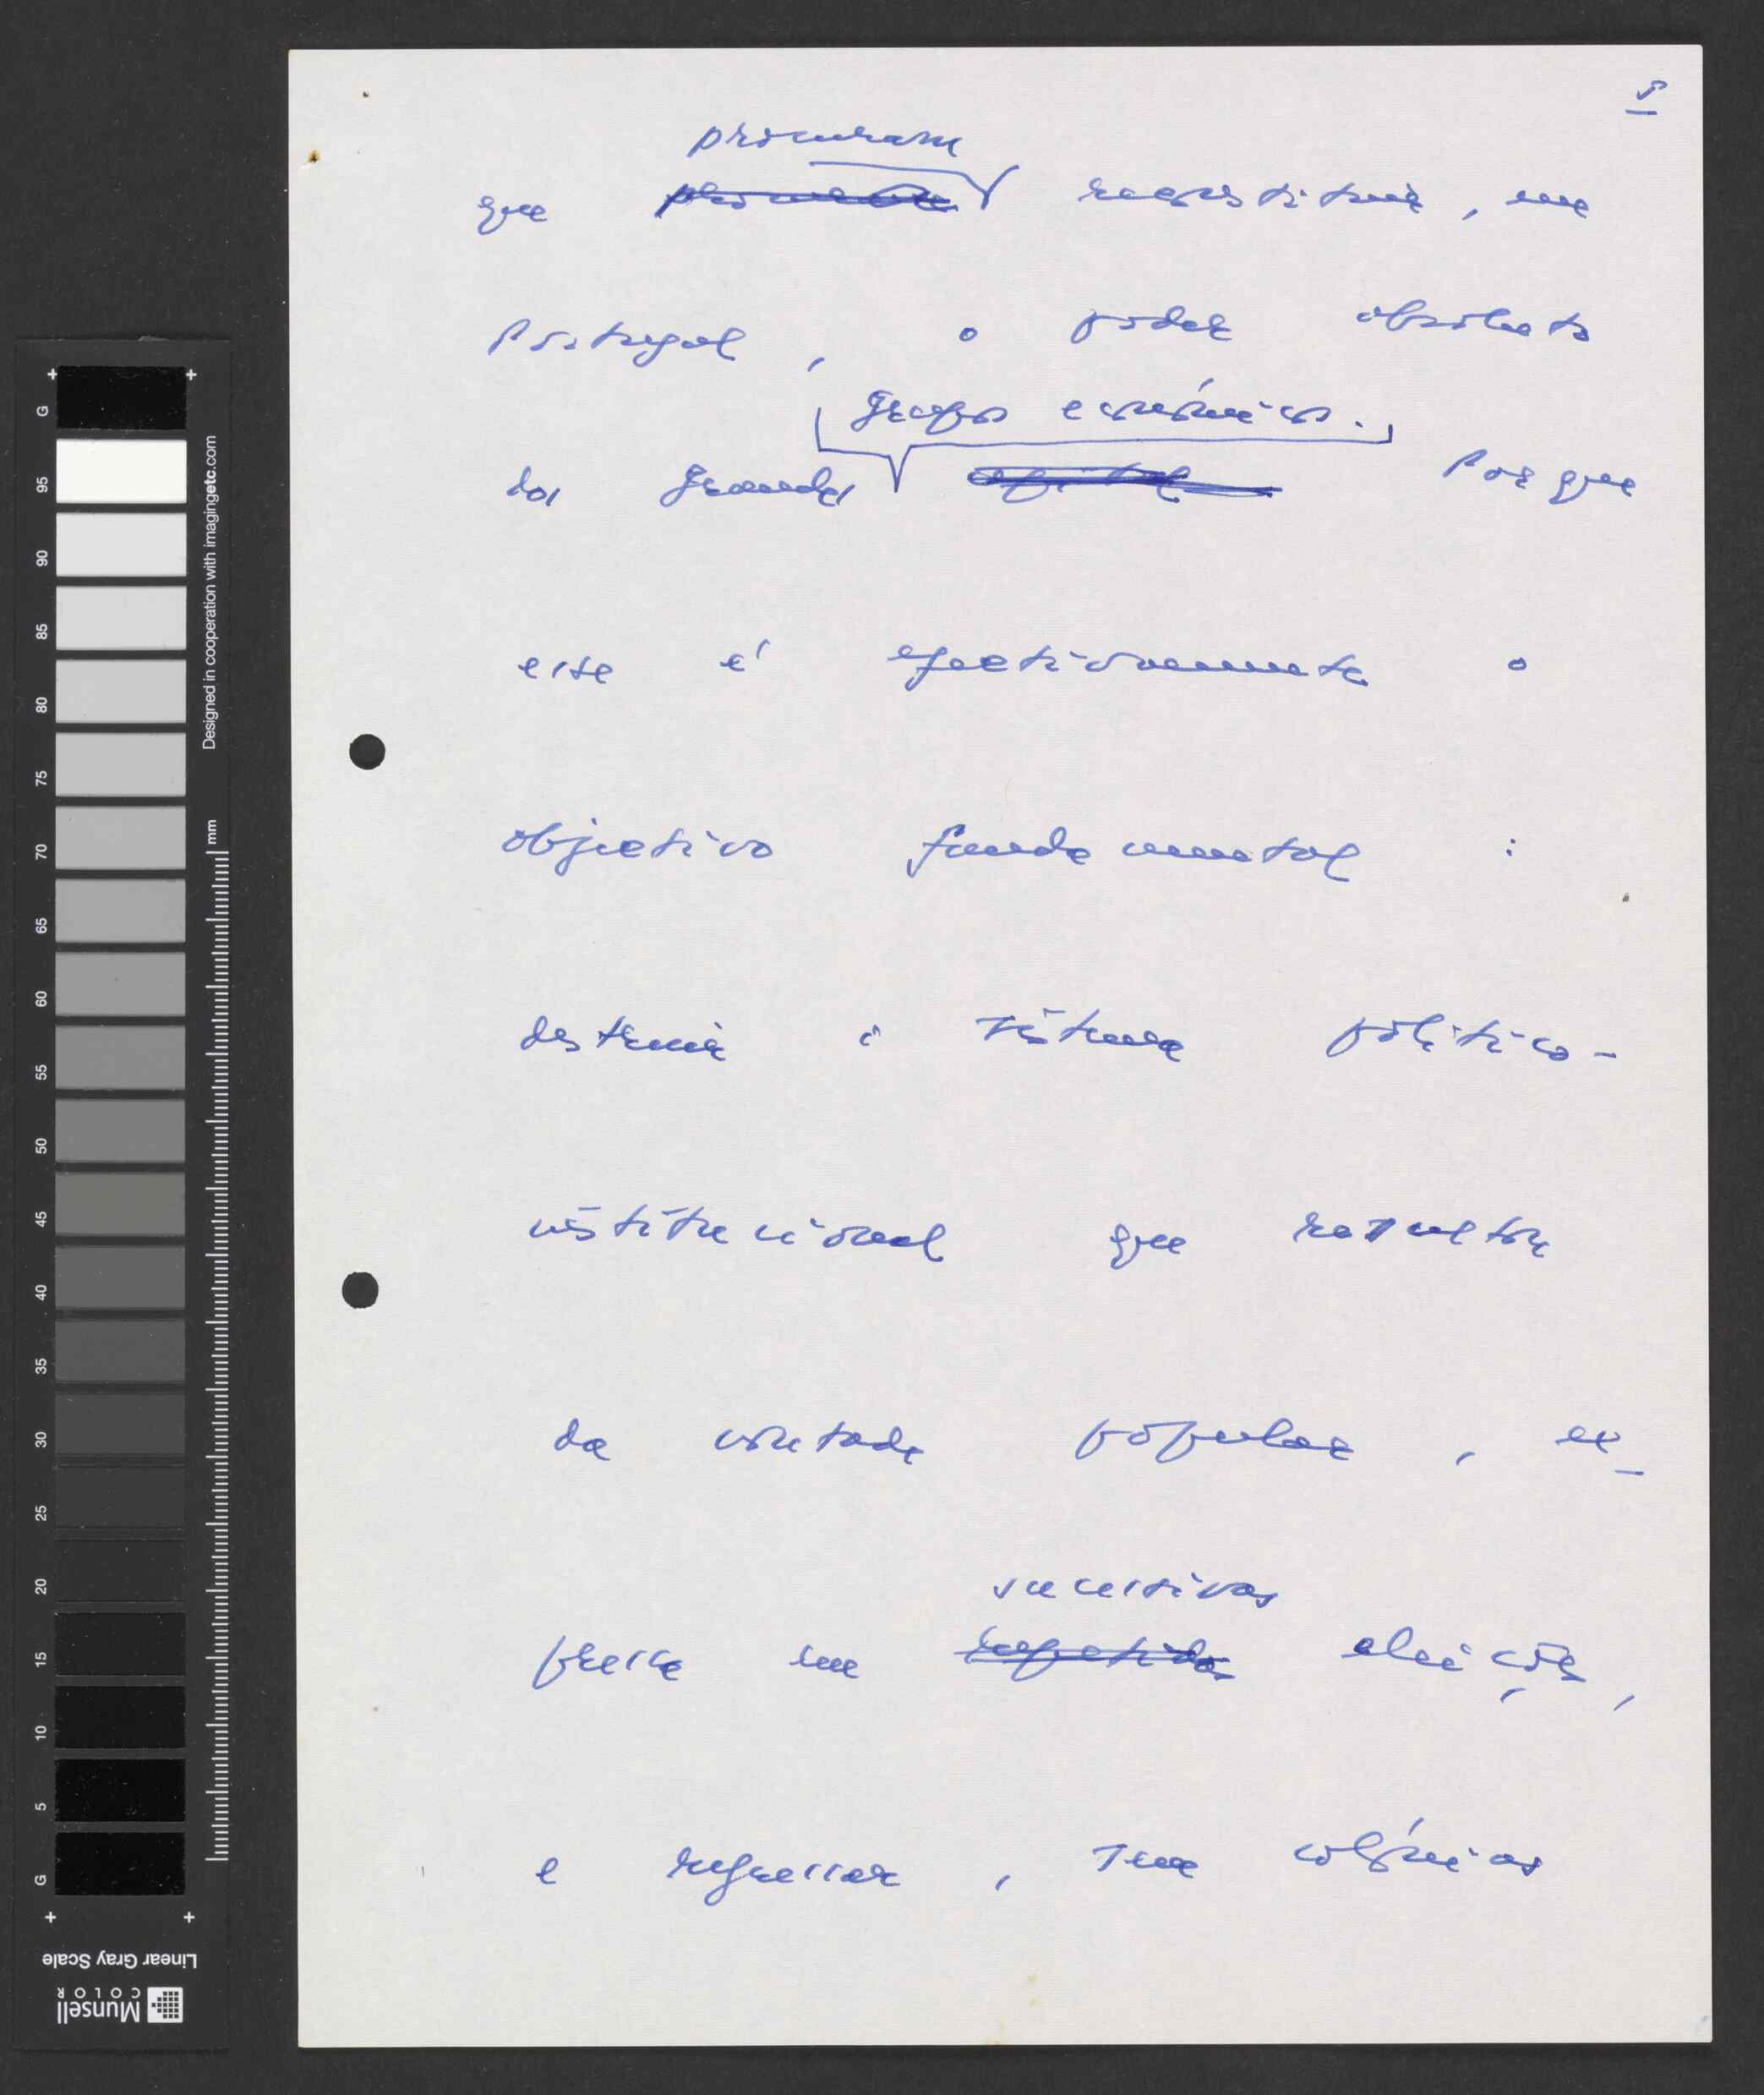 5
procuram
que procuram reconstituir, em
Portugal, o poder absoluto
grupos económicos.
dos grandes capital Porque
esse é efectivamente o
objectivo fundamental :
destruir o sistema político-
institucional que resultou
da vontade popular, ex-
sucessivas
pressa em repetidas eleições,
e regressar, sem colónias
G
95
90
85
80
75
70
65
60
55
50
45
40
35
30
25
20
15
10
5
G
Designed in cooperation with imagingetc.com
mm
Linear Gray Scale
Munsell
COLOR